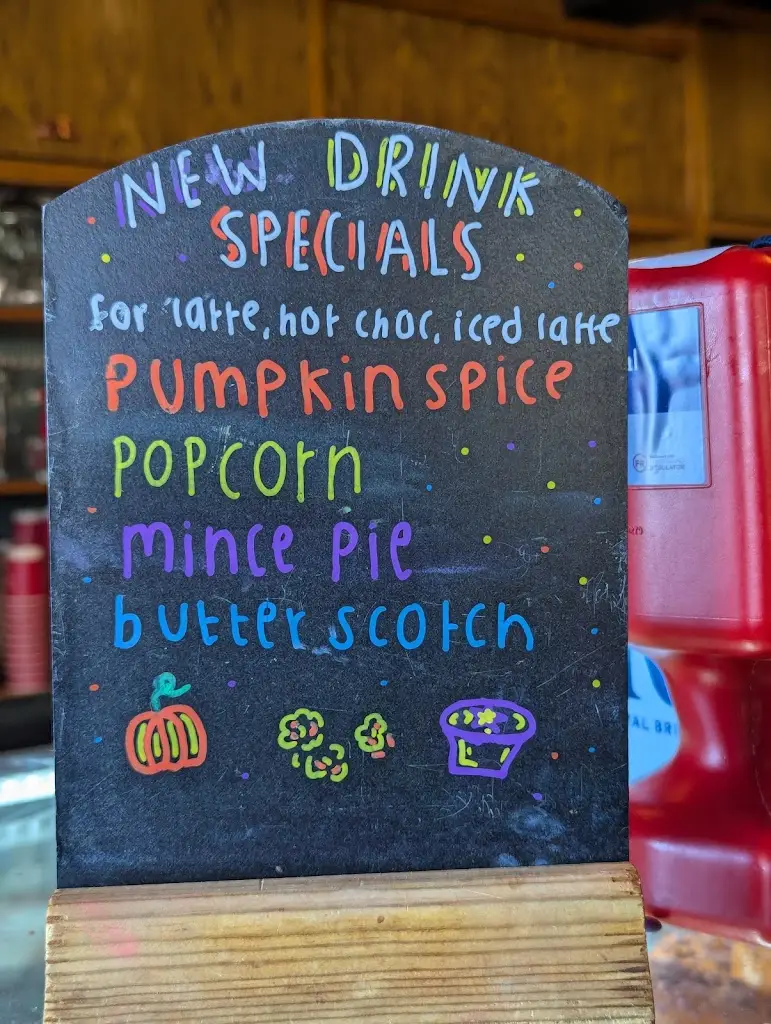 NEW DRINK
SPECIALS
for latte, hot choc, iced latte
Pumpkin spice
POPCOrn
mince pie
butterscotch